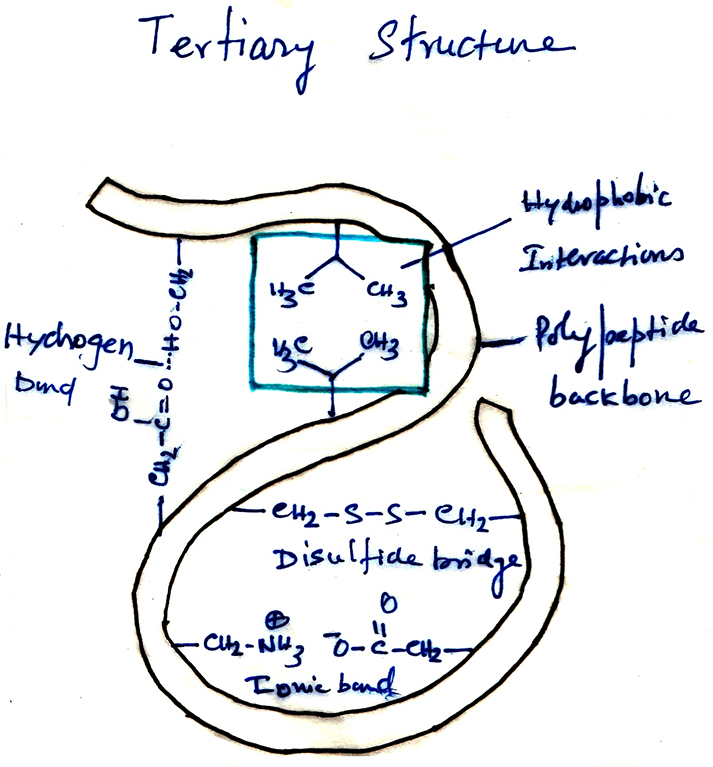 Tertiary Structure
Hydrophobic
Interactions
H3C
CH3
H3C
CH3
Hydrogen
bond
CH2-C=O---H O-CH2
OH
Polypeptide
backbone
-CH2-S-S-CH2-
Disulfide bridge
O
-CH2-NH3 ⊕ -O-C-CH2-
Ionic bond